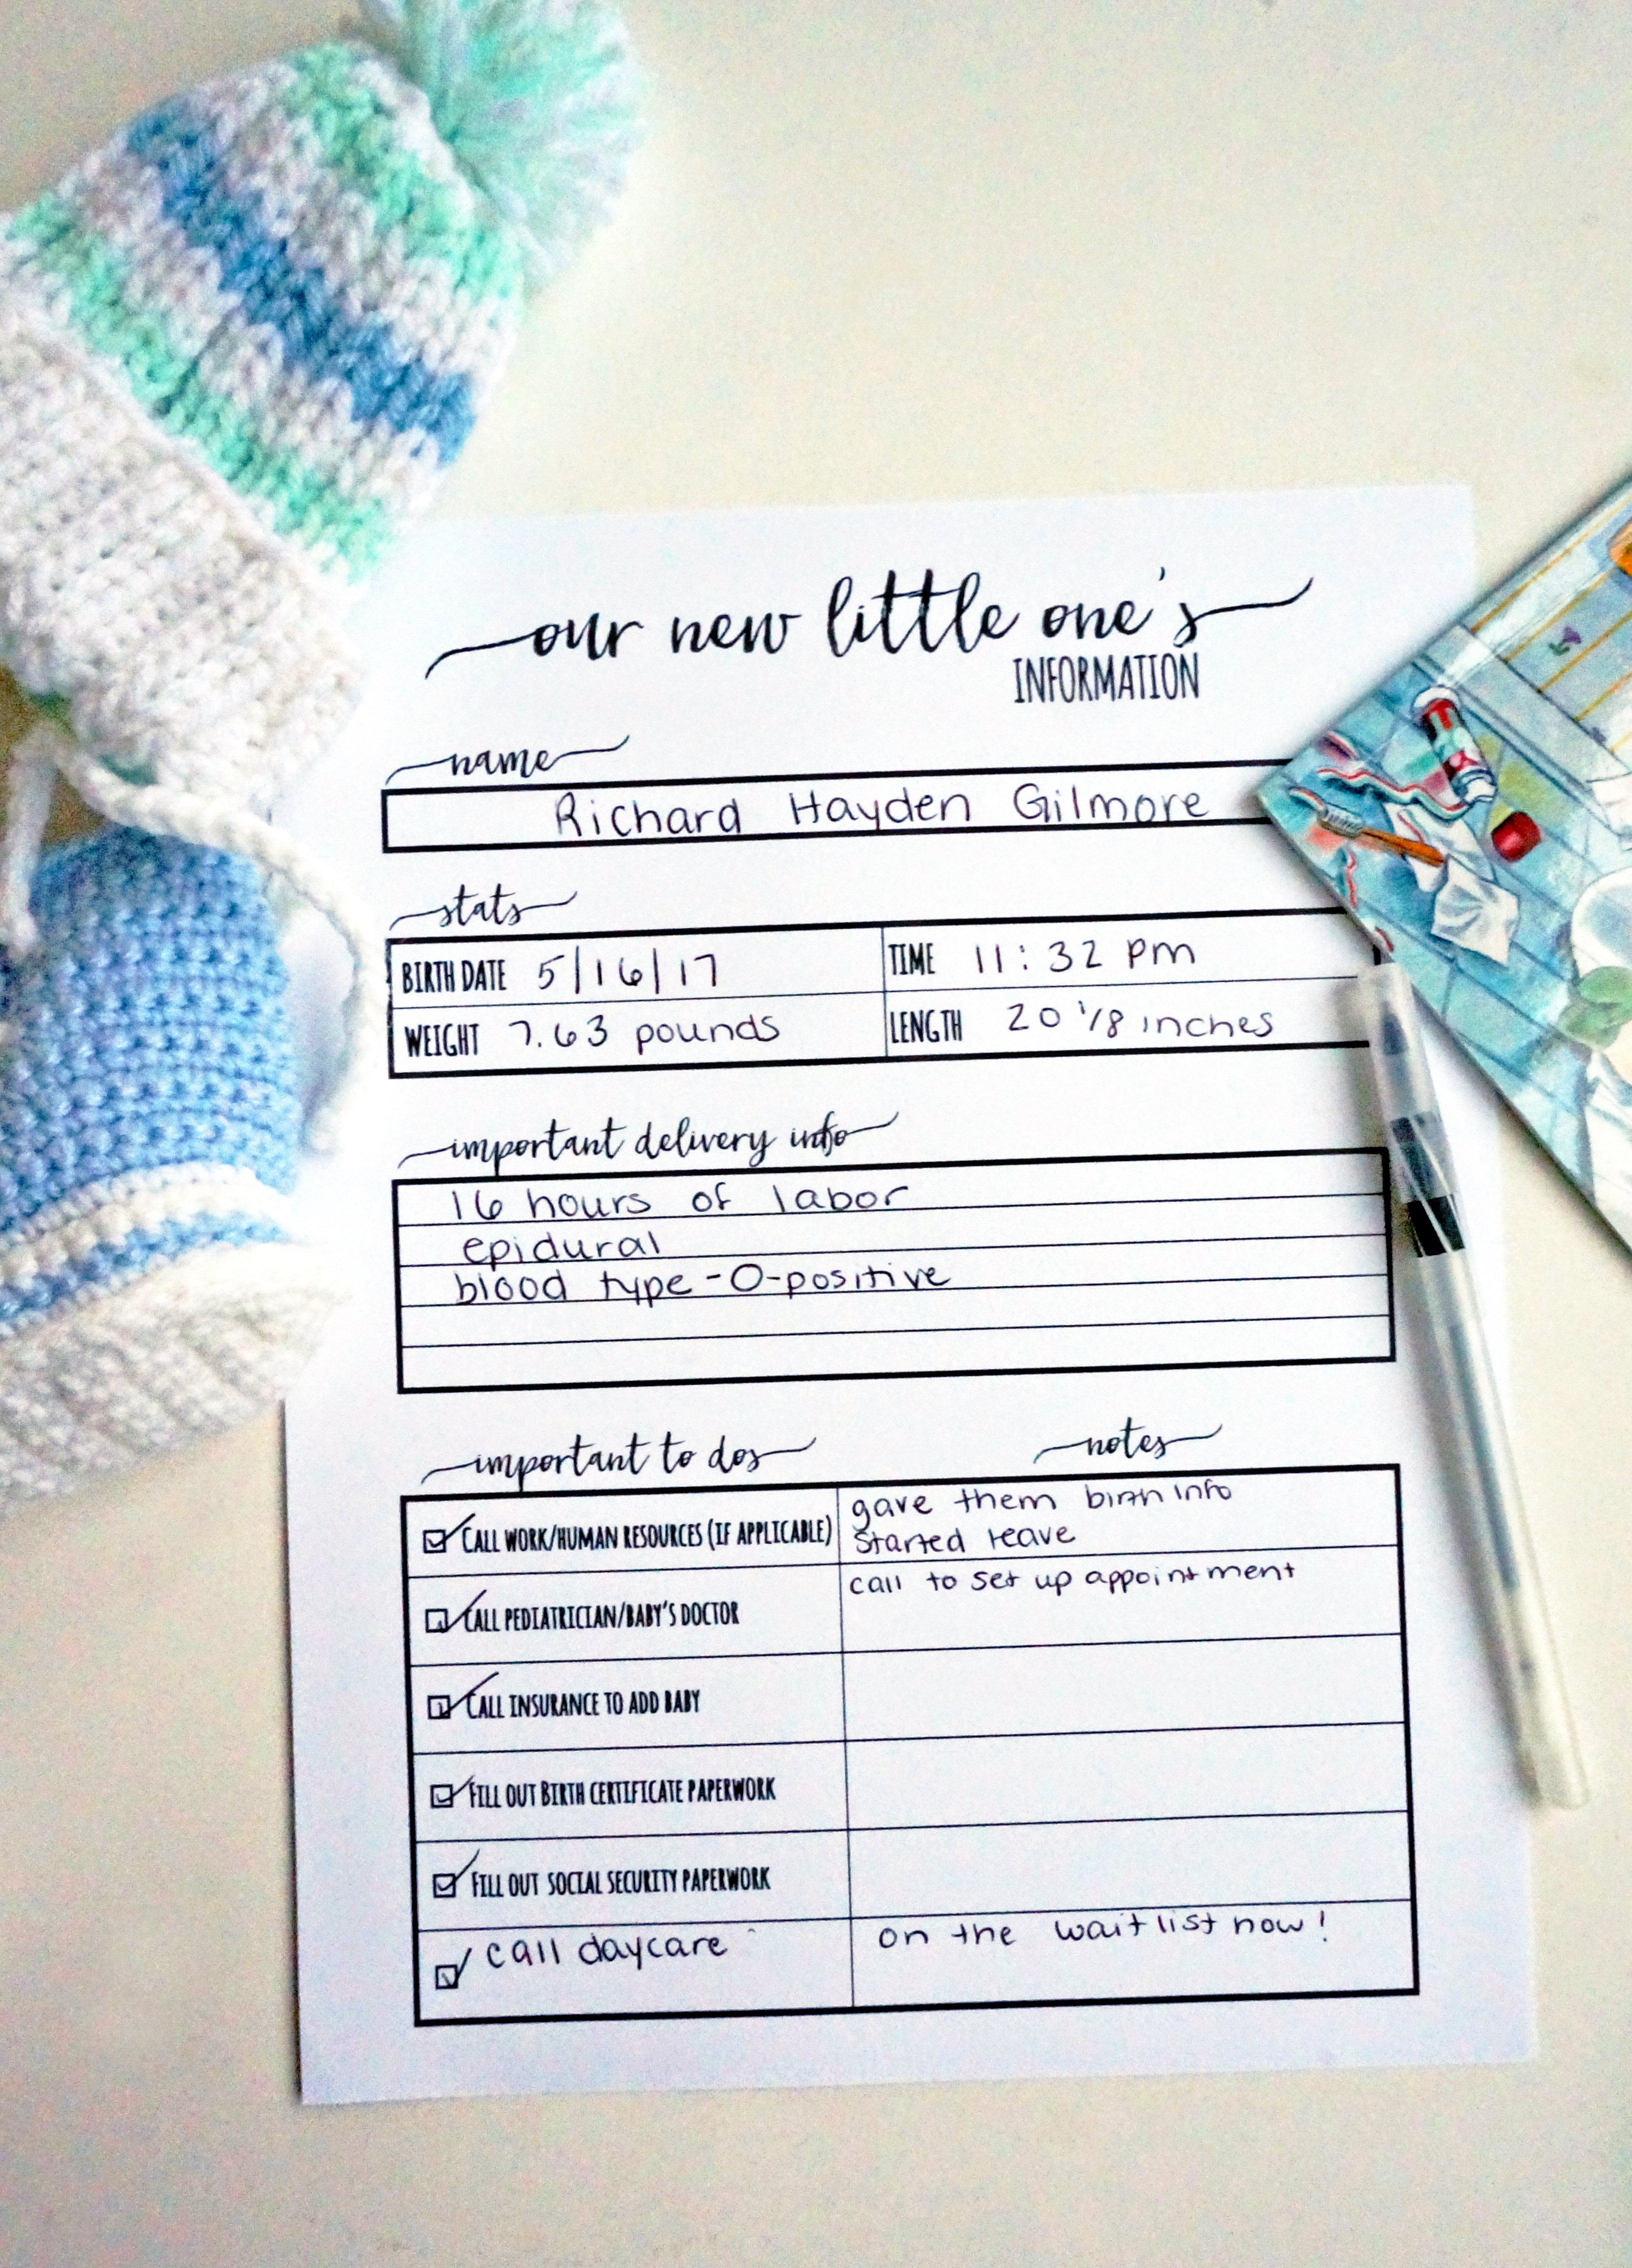 our new little one's
INFORMATION
name
Richard Hayden Gilmore
stats
BIRTH DATE 5/16/17 TIME 11:32 pm
WEIGHT 7.63 pounds LENGTH 20 1/8 inches
important delivery info
16 hours of labor
epidural
blood type - O-positive
important to dos notes
CALL WORK/HUMAN RESOURCES (IF APPLICABLE) gave them birth info
started leave
CALL PEDIATRICIAN/BABY'S DOCTOR call to set up appointment
CALL INSURANCE TO ADD BABY
FILL OUT BIRTH CERTIFICATE PAPERWORK
FILL OUT SOCIAL SECURITY PAPERWORK
call daycare on the waitlist now!